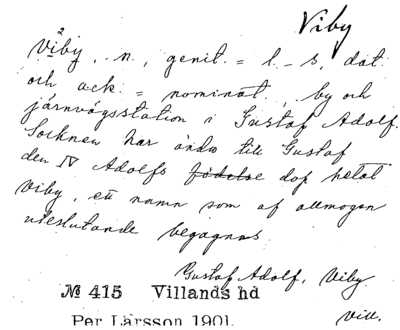 Viby
Viby, n., genit. = l. -s, dat.
och ack. = nominat., by och
järnvägsstation i Gustaf Adolf.
Socknen har ända till Gustaf
den IV Adolfs födelse dop hetat
Viby, ett namn som af allmogen
uteslutande begagnas
Gustaf Adolf, Viby
№ 415 Villands hd
Vill.
Per Larsson 1901.